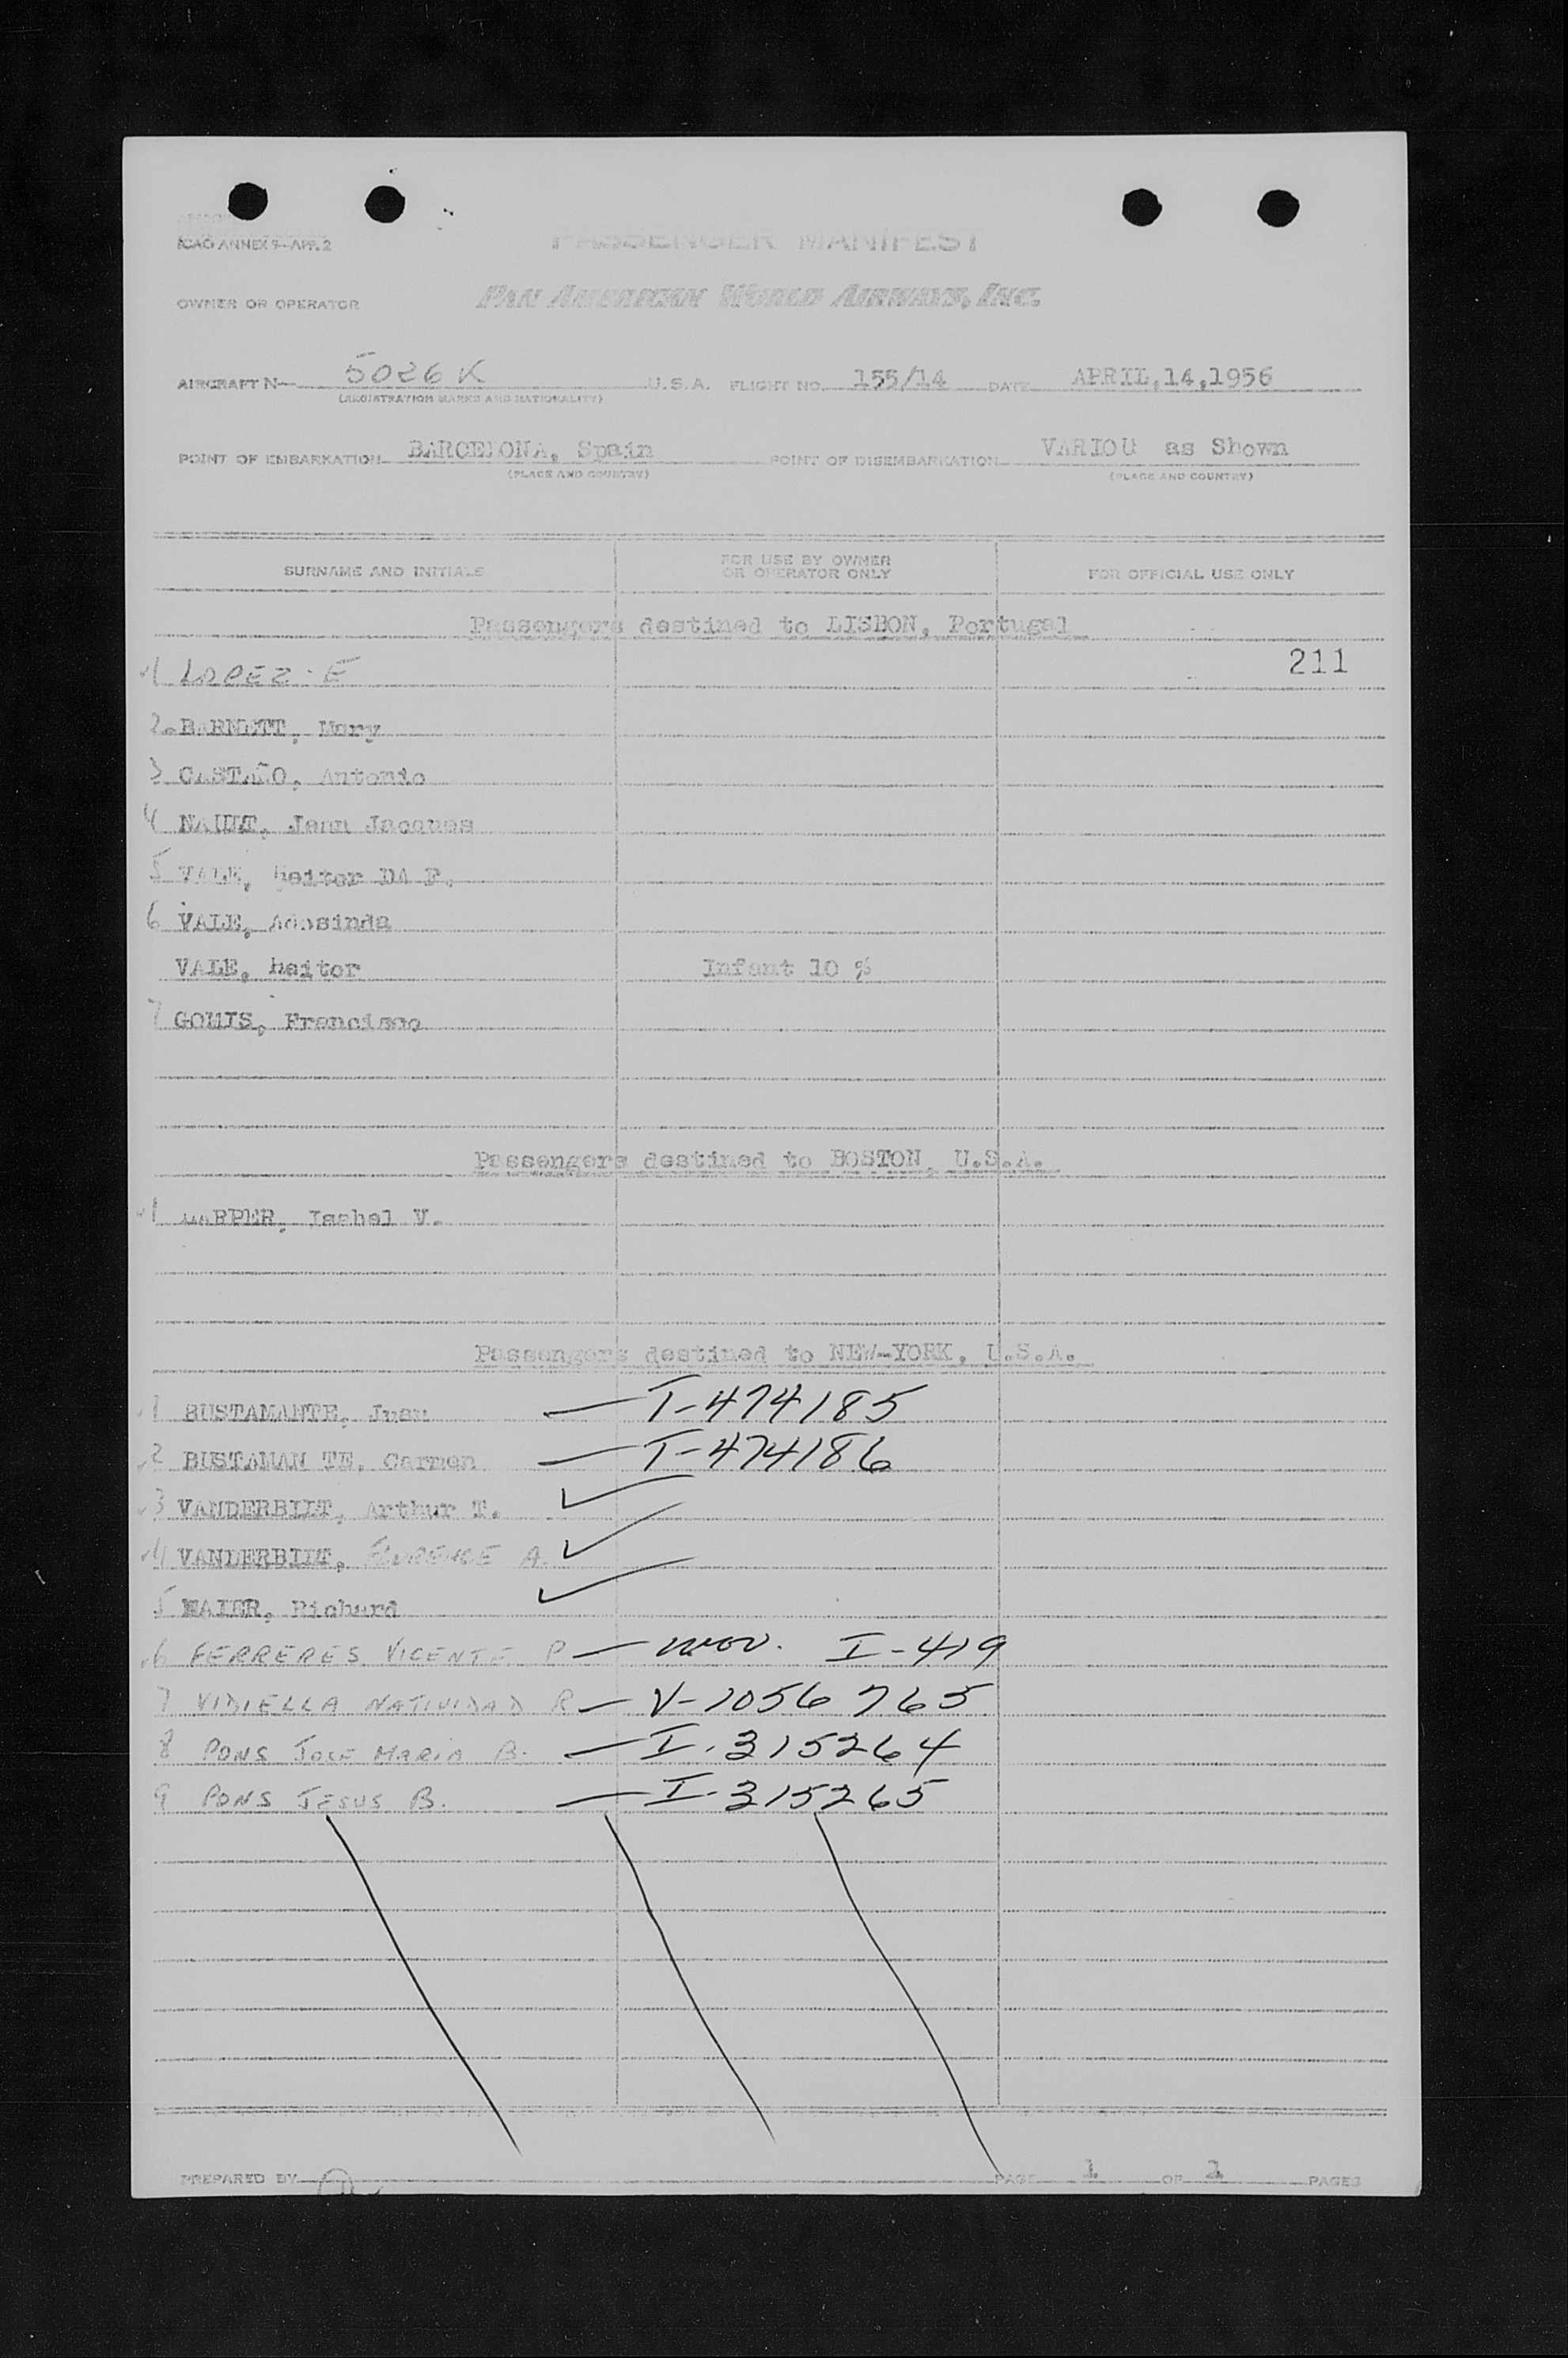 ICAO ANNEX 9-APP. 2
PASSENGER MANIFEST
OWNER OR OPERATOR PAN AMERICAN WORLD AIRWAYS, INC.
AIRCRAFT N— 5026K U.S.A. FLIGHT NO. 155/14 DATE APRIL,14,1956
(REGISTRATION MARKS AND NATIONALITY)
POINT OF EMBARKATION BARCELONA, Spain POINT OF DISEMBARKATION VARIOU as Shown
(PLACE AND COUNTRY) (PLACE AND COUNTRY)
SURNAME AND INITIALS FOR USE BY OWNER OR OPERATOR ONLY FOR OFFICIAL USE ONLY
Passengers destined to LISBON, Portugal
1 LOPEZ - E 211
2 BARNETT, Mary
3 CASTAÑO, Antonio
4 NAULT, Jean Jacques
5 VALE, heitor DA F.
6 VALE, Adosinda
VALE, heitor Infant 10 %
7 GOMIS, Francisco
Passengers destined to BOSTON, U.S.A.
1 HARPER, Isabel V.
Passengers destined to NEW-YORK, U.S.A.
1 BUSTAMANTE, Juan — T-474185
2 BUSTAMAN TE, Carmen — T-474186
3 VANDERBILT, Arthur T. ✓
4 VANDERBILT, FLORENCE A. ✓
5 MAIER, Richard ✓
6 FERRERES VICENTE P — I-419
7 VIDIELLA NATIVIDAD R — V-1056765
8 PONS JOSE MARIA B. — I-315264
9 PONS JESUS B. — I-315265
PREPARED BY PAGE 1 OF 1 PAGES